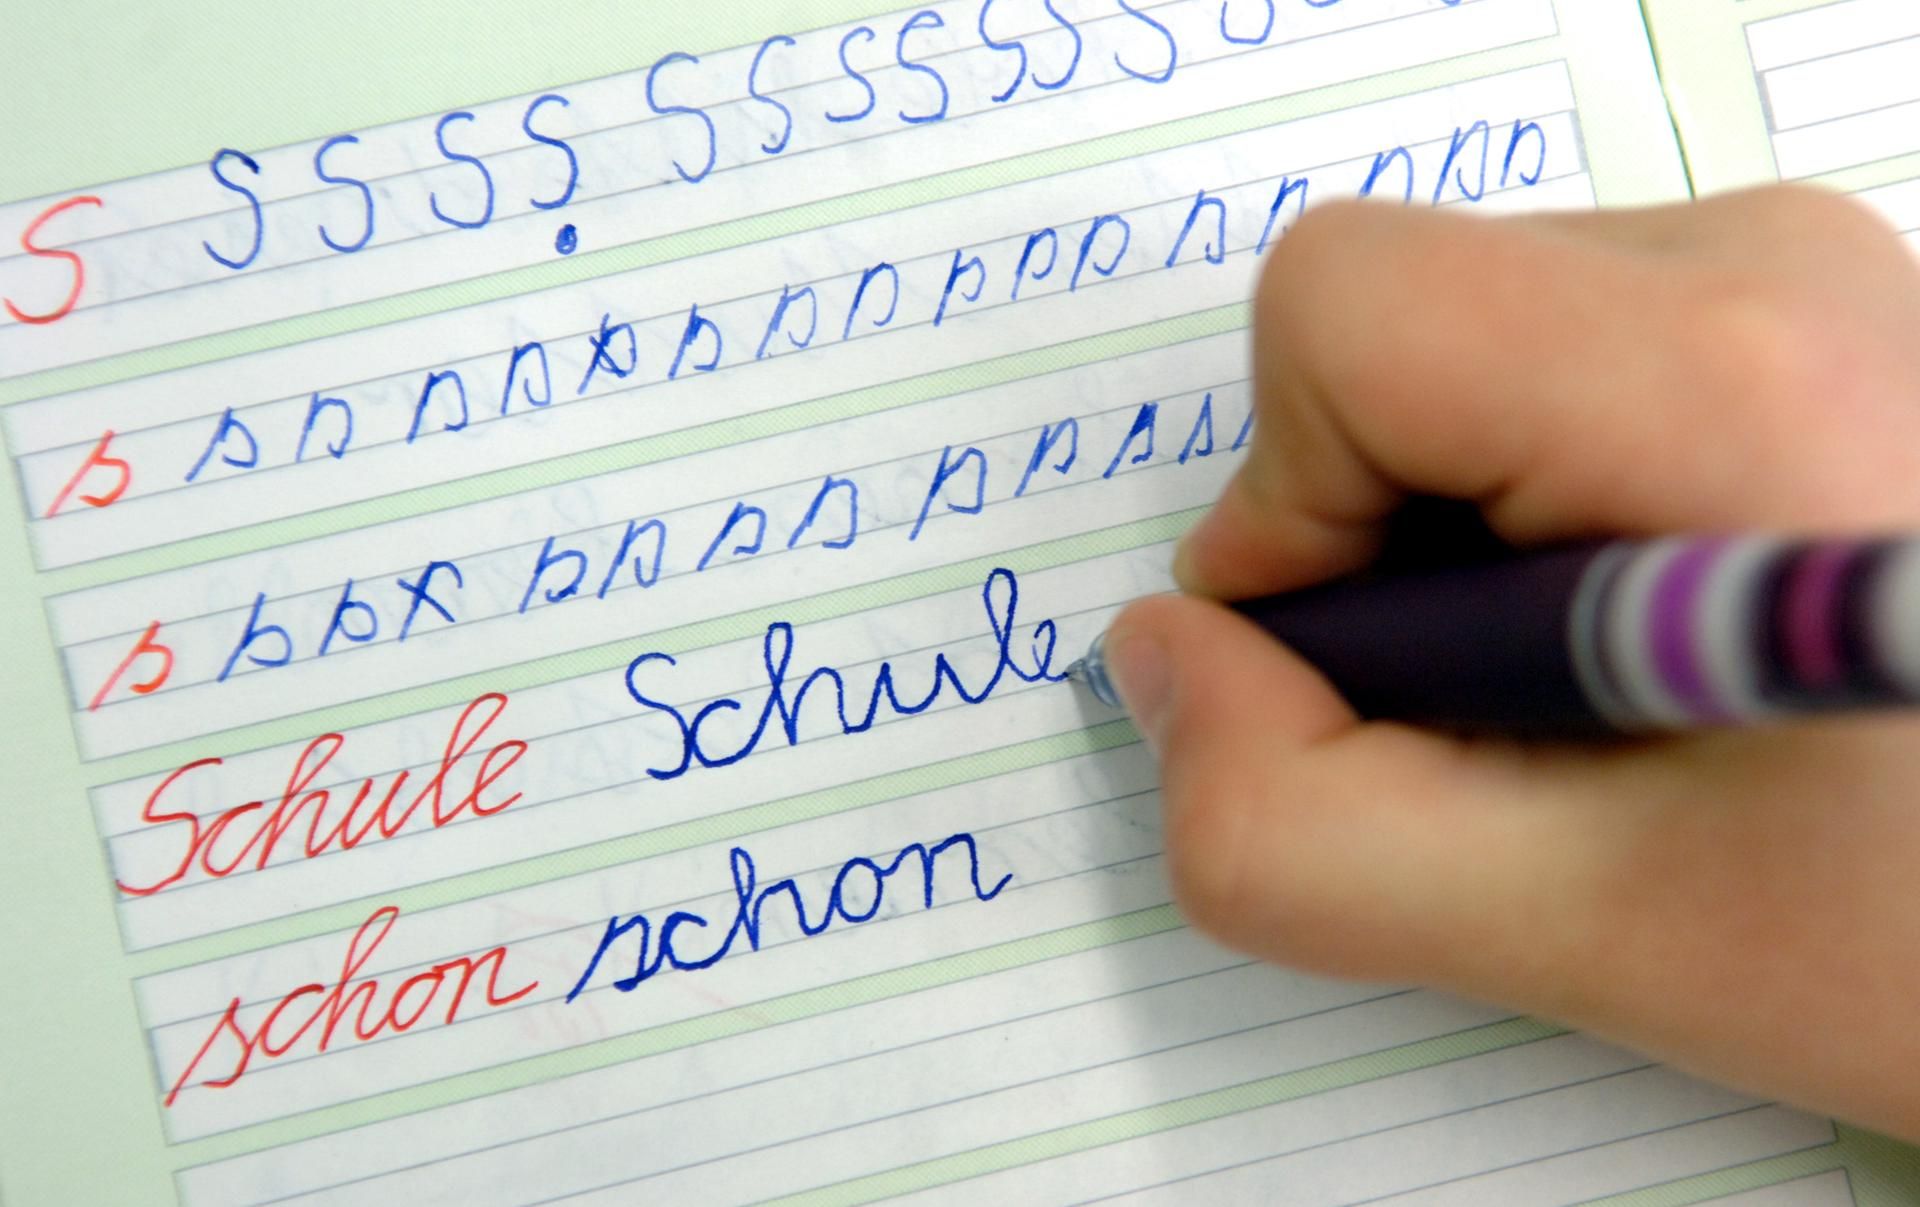 S S S S S S S S S S S S
s s s s s s s s s s s s s s s s s
s s s s s s s s s s s s s
Schule Schule
schon schon